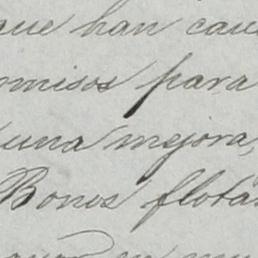 que han cau
omisos para
una mejora,
Bonos flota